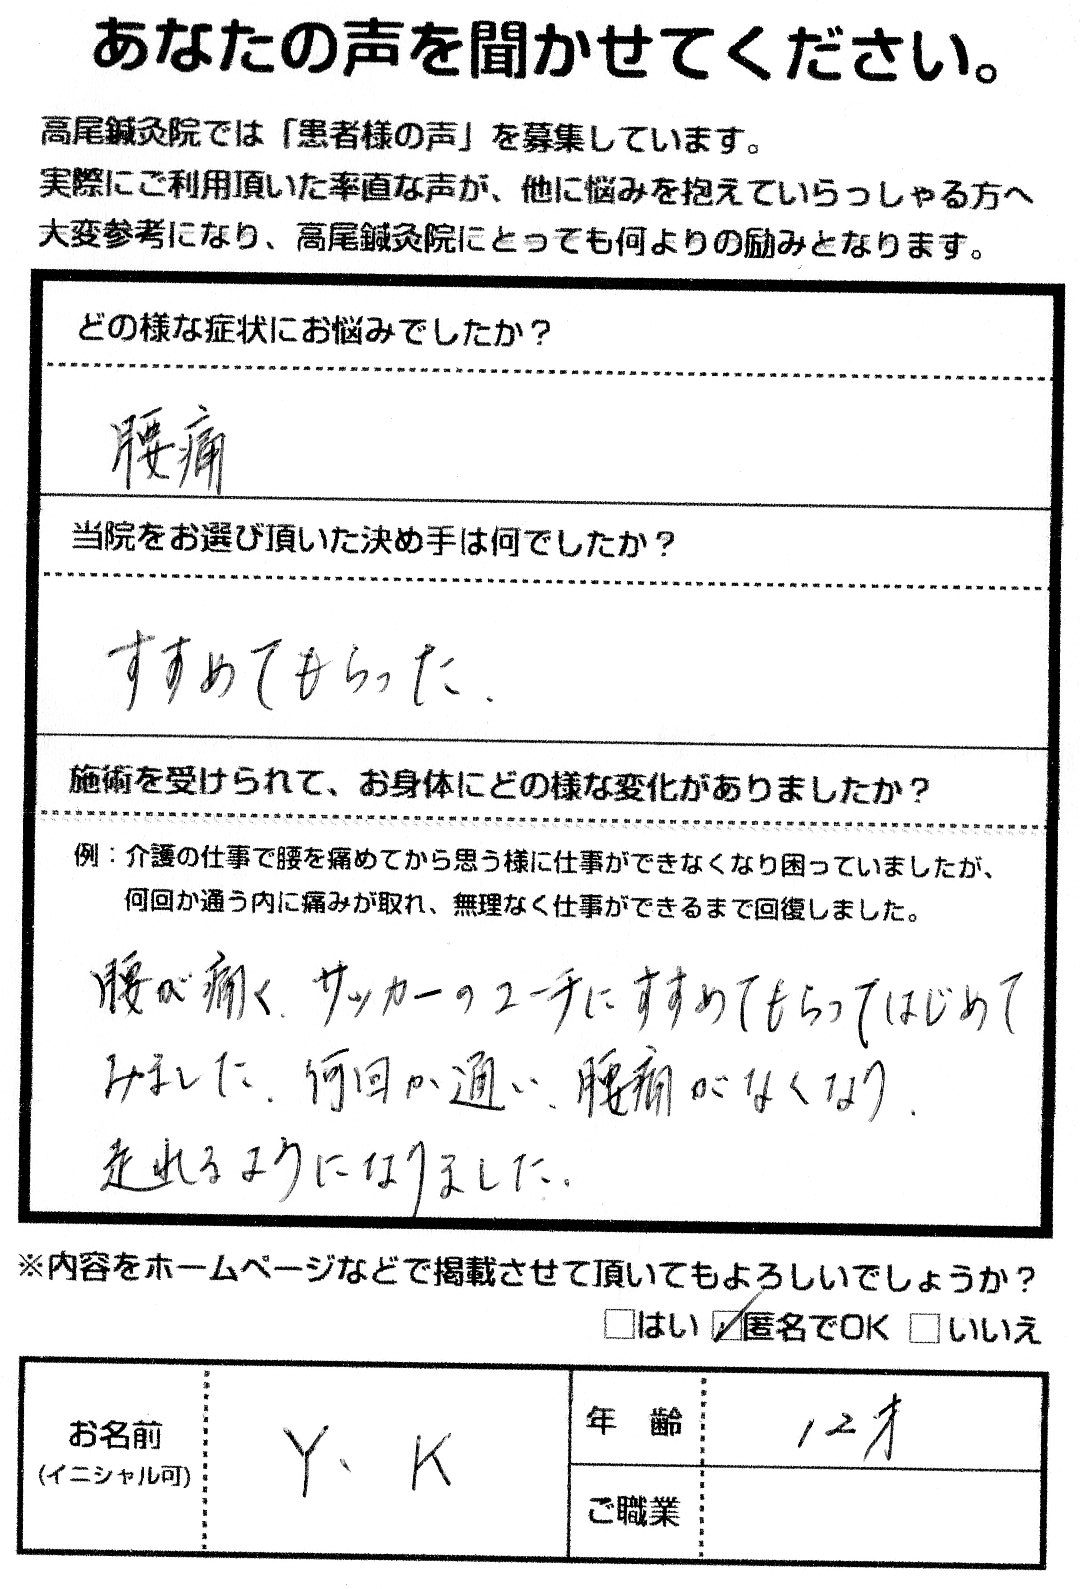 あなたの声を聞かせてください。
高尾鍼灸院では「患者様の声」を募集しています。
実際にご利用頂いた率直な声が、他に悩みを抱えていらっしゃる方へ
大変参考になり、高尾鍼灸院にとっても何よりの励みとなります。
どの様な症状にお悩みでしたか？
腰痛
当院をお選び頂いた決め手は何でしたか？
すすめてもらった.
施術を受けられて、お身体にどの様な変化がありましたか？
例：介護の仕事で腰を痛めてから思う様に仕事ができなくなり困っていましたが、
何回か通う内に痛みが取れ、無理なく仕事ができるまで回復しました。
腰が痛く、サッカーのコーチにすすめてもらってはじめて
みました、何回か通い、腰痛がなくなり、
走れるようになりました.
※内容をホームページなどで掲載させて頂いてもよろしいでしょうか？
□はい ☑匿名でOK □いいえ
お名前
(イニシャル可)
Y、K
年　齢
12才
ご職業